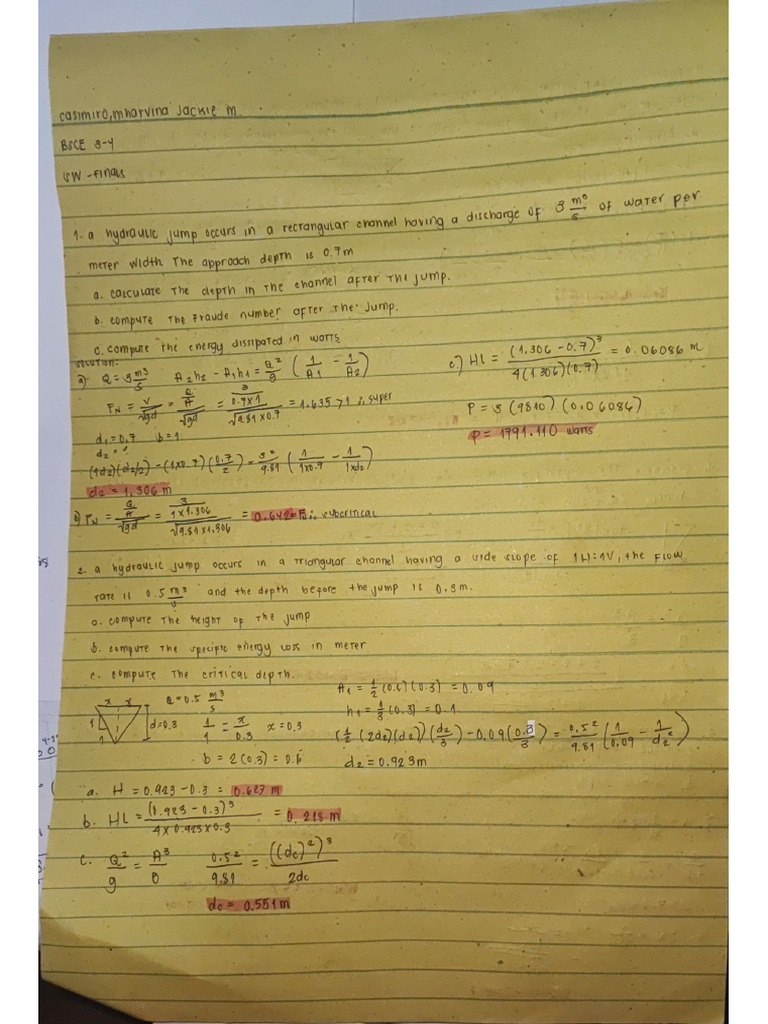 casimiro, mharvina Jackie m.
BSCE 3-4
SW - Finals
1. a hydraulic jump occurs in a rectangular channel having a discharge of 3 m³/s of water per
meter width The approach depth is 0.7m
a. calculate the depth in the channel after the jump.
b. compute the Fraude number after the jump.
c. compute the energy dissipated in watts
solution:
a) Q = 3 m³/s A₂h₂ - A₁h₁ = Q²/g (1/A₁ - 1/A₂)
FN = V/√gd = (Q/A)/√gd = (3/(0.7×1))/√(9.81×0.7) = 1.635 > 1 ∴ super
d₁ = 0.7 b = 1
d₂ = ?
(1d₂)(d₂/2) - (1×0.7)(0.7/2) = 3²/9.81 (1/(1×0.7) - 1/(1×d₂))
d₂ = 1.306 m
b) FN = (Q/A)/√gd = (3/(1×1.306))/√(9.81×1.306) = 0.642 = F₂ ∴ subcritical
c.) HL = (1.306 - 0.7)³/(4(1.306)(0.7)) = 0.06086 m
P = 3 (9810) (0.06086)
P = 1791.110 watts
2. a hydraulic jump occurs in a triangular channel having a side slope of 1H:1V, the flow
rate is 0.5 m³/s and the depth before the jump is 0.3m.
a. compute the height of the jump
b. compute the specific energy loss in meter
c. compute the critical depth.
x x
1
1
d=0.3
Q = 0.5 m³/s
1/1 = x/0.3 x = 0.3
b = 2(0.3) = 0.6
A₁ = ½ (0.6)(0.3) = 0.09
h₁ = ⅓ (0.3) = 0.1
(½ (2d₂)(d₂)) (d₂/3) - 0.09 (0.3/3) = 0.5²/9.81 (1/0.09 - 1/d₂²)
d₂ = 0.923m
a. H = 0.923 - 0.3 = 0.623 m
b. HL = (0.923 - 0.3)³/(4×0.923×0.3) = 0.218 m
c. Q²/g = A³/B 0.5²/9.81 = ((dc)²)³/2dc
dc = 0.551 m